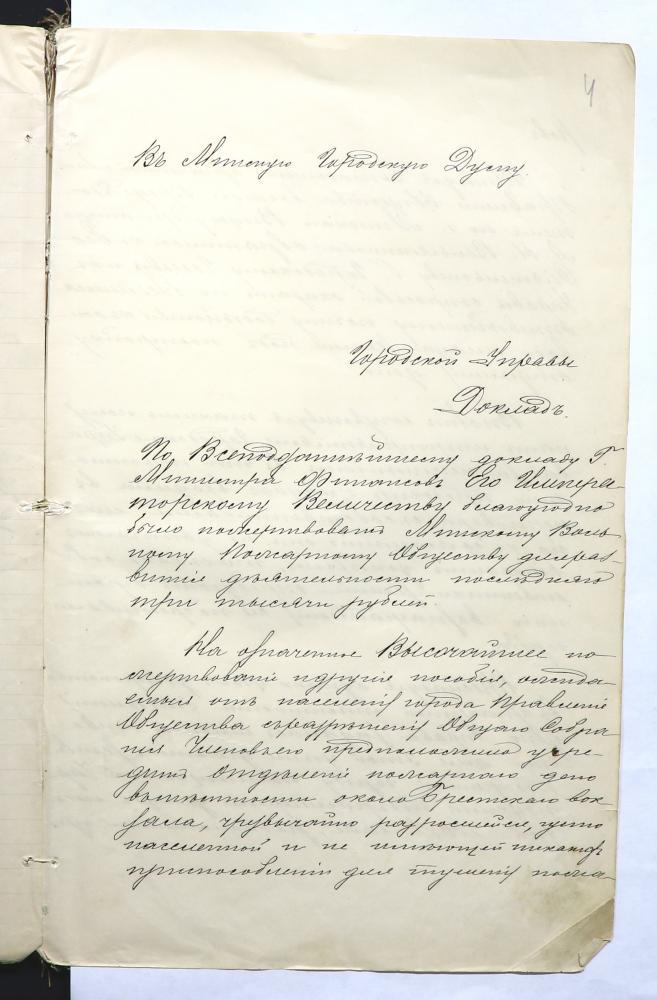 4
Въ Минскую Городскую Думу.
Городской Управы
Докладъ.
По Всеподданнѣйшему докладу Г.
Министра Финансовъ Его Импера-
торскому Величеству благоугодно
было пожертвовать Минскому Воль-
ному Пожарному Обществу для раз-
витія дѣятельности послѣдняго
три тысячи рублей.
На означенное Высочайшее по-
жертвованіе и другія пособія, ожида-
емыя отъ населенія города Правленіе
Общества съ разрѣшенія Общаго Собра-
нія Членовъ его предположило учре-
дить отдѣленіе пожарнаго депо
въ мѣстности около Брестскаго вок-
зала, чрезвычайно разросшейся, густо
населенной и не имѣющей никакихъ
приспособленій для тушенія пожа-